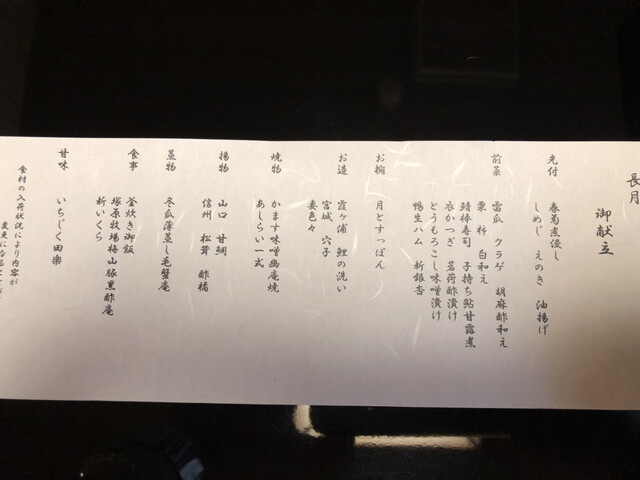 長月
御献立
先付
春菊煮浸し
しめじ えのき 油揚げ
前菜
雷瓜 クラゲ 胡麻酢和え
栗 柿 白和え
鯖棒寿司 子持ち鮎甘露煮
衣かつぎ 茗荷酢漬け
とうもろこし味噌漬け
鴨生ハム 新銀杏
お椀
月とすっぽん
お造
霞ヶ浦 鯉の洗い
宮城 穴子
妻色々
焼物
かます味噌幽庵焼
あしらい一式
揚物
山口 甘鯛
信州 松茸 酢橘
蒸物
冬瓜薄蒸し毛蟹庵
食事
釜炊き御飯
塚原牧場梅山豚黒酢庵
新いくら
甘味
いちじく田楽
食材の入荷状況により内容が
変更になること